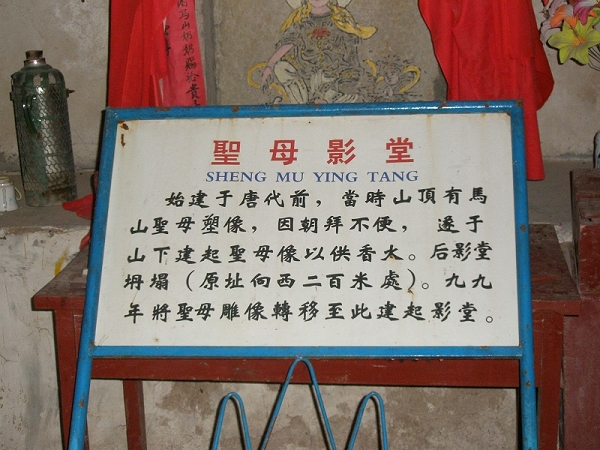 聖母影堂
SHENG MU YING TANG
始建于唐代前，當時山頂有馬
山聖母塑像，因朝拜不便，遂于
山下建起聖母像以供香火。后影堂
坍塌（原址向西二百米處）。九九
年將聖母雕像轉移至此建起影堂。